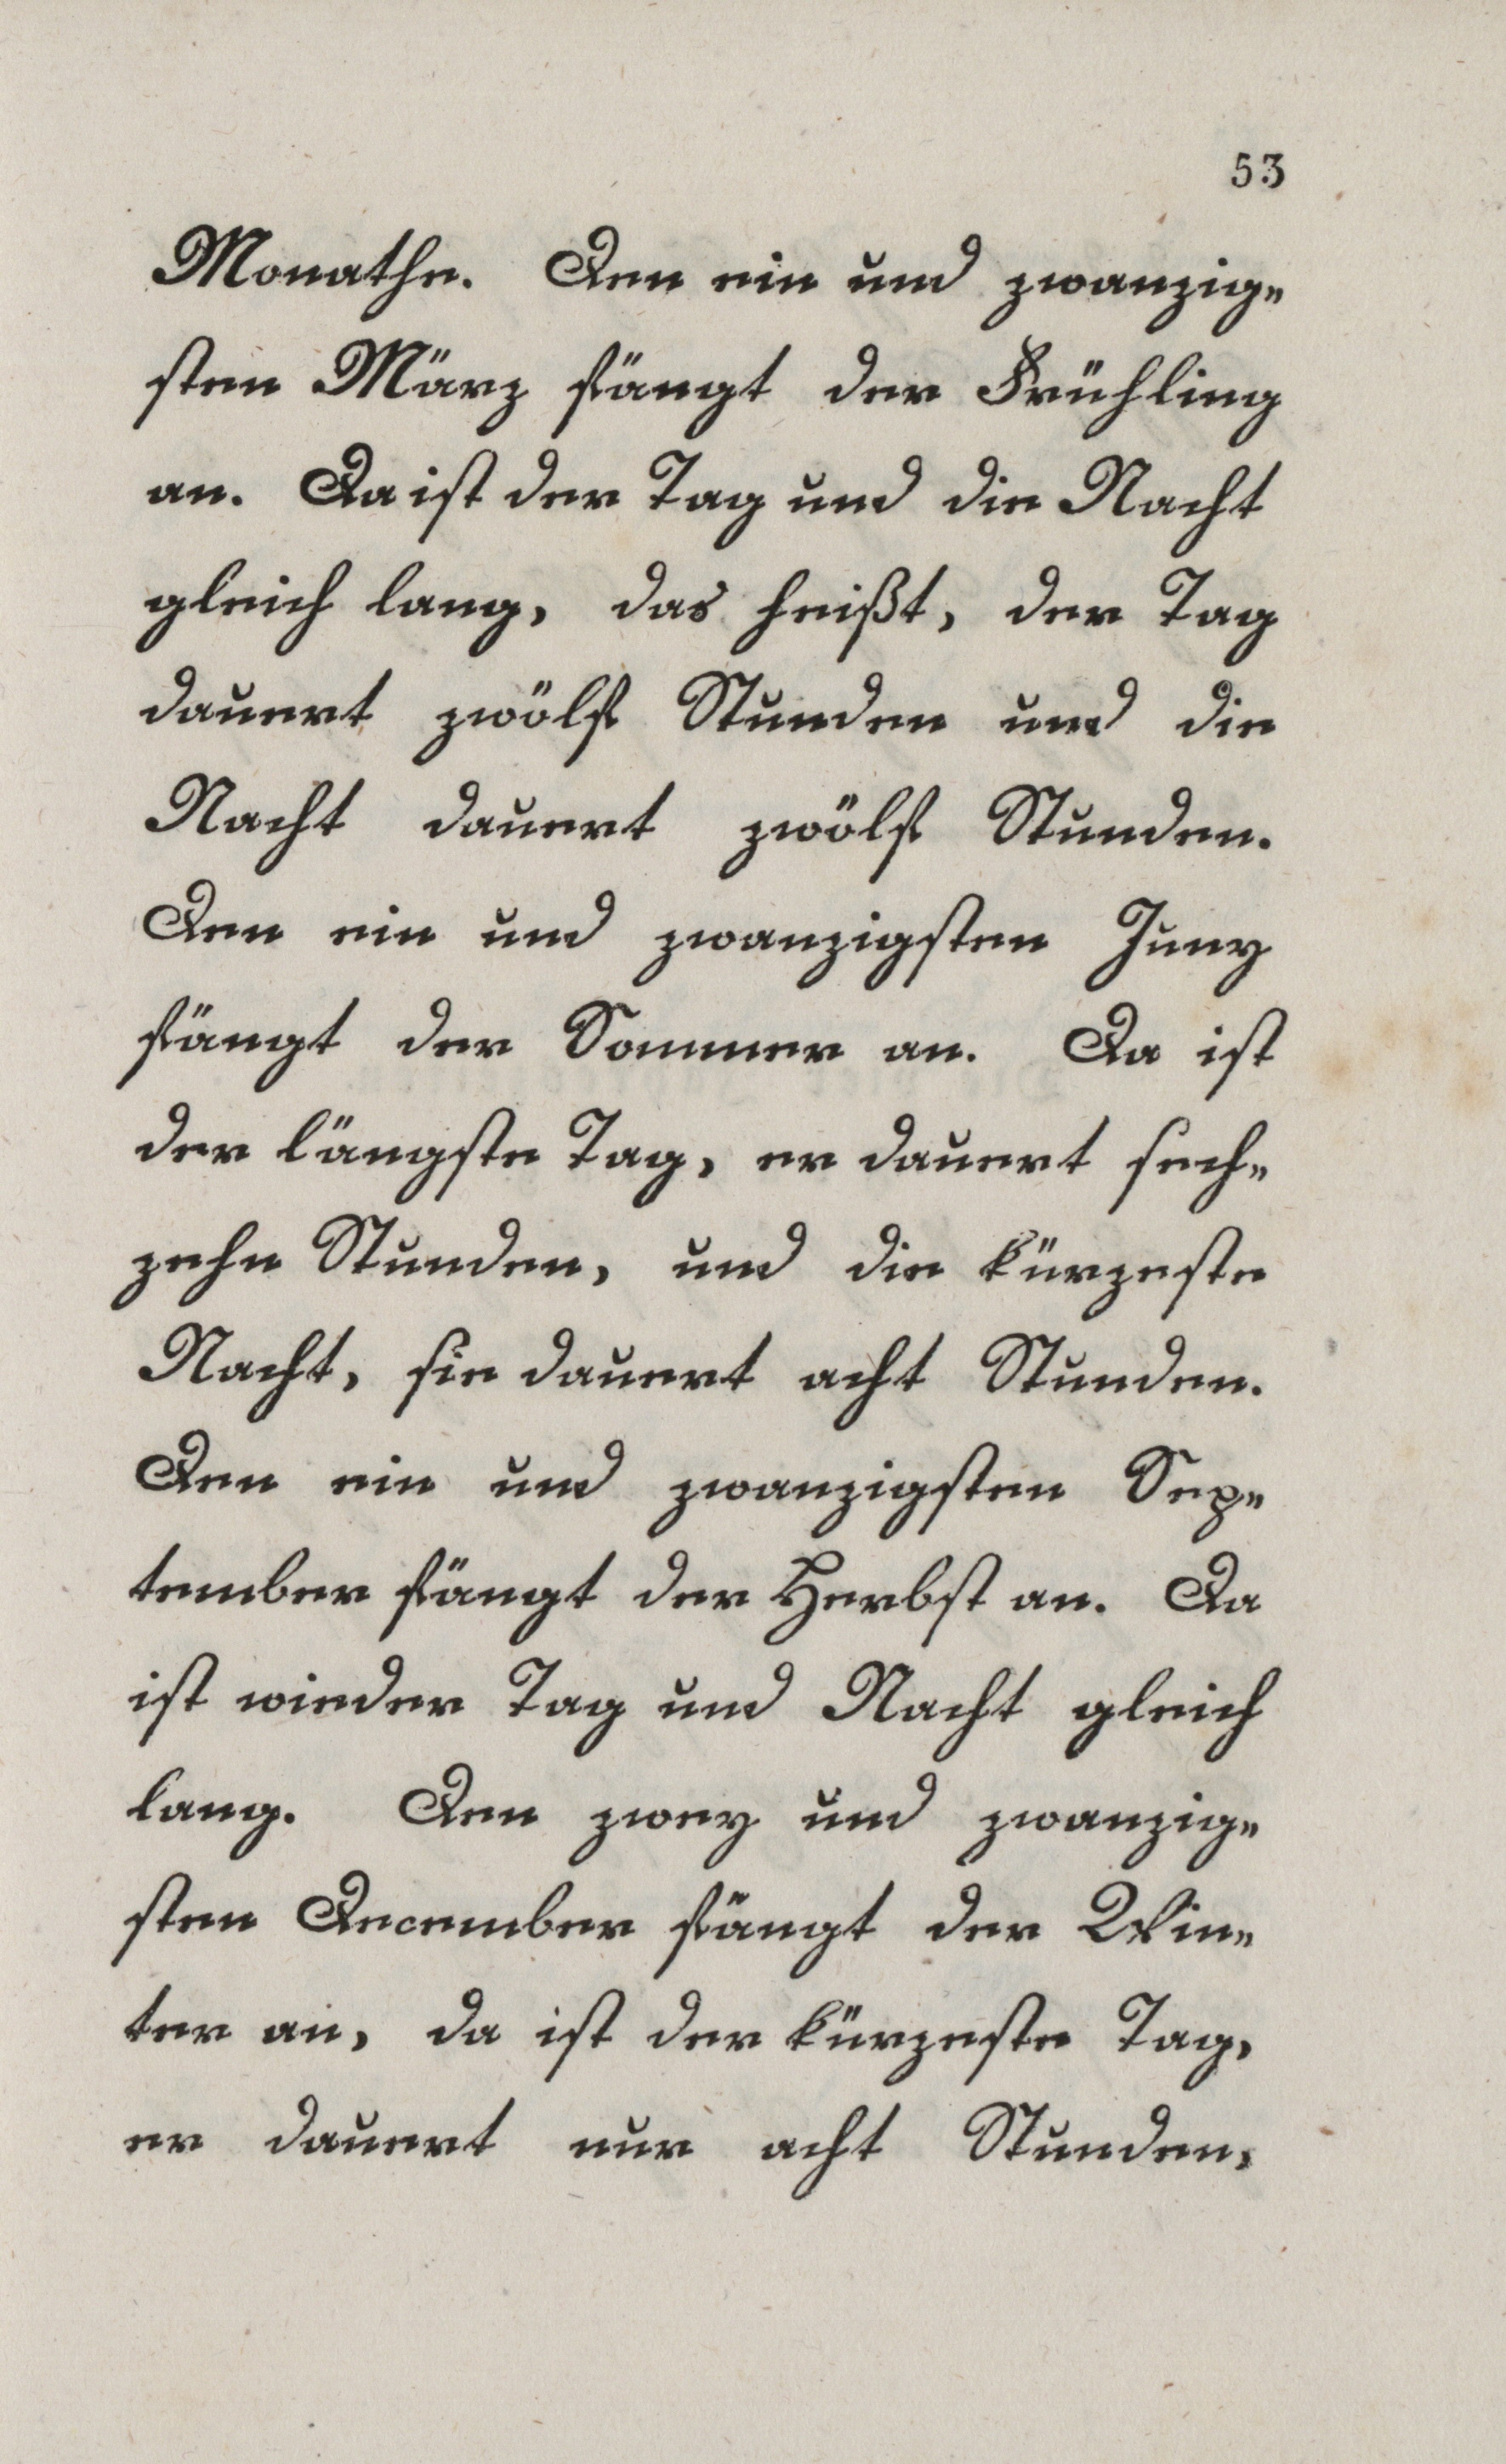 53
Monathe. Den ein und zwanzig-
sten März fängt der Frühling
an. Da ist der Tag und die Nacht
gleich lang, das heißt, der Tag
dauert zwölf Stunden und die
Nacht dauert zwölf Stunden.
Den ein und zwanzigsten Juny
fängt der Sommer an. Da ist
der längste Tag, er dauert sech-
zehn Stunden, und die kürzeste
Nacht, sie dauert acht Stunden.
Den ein und zwanzigsten Sep-
tember fängt der Herbst an. Da
ist wieder Tag und Nacht gleich
lang. Den zwey und zwanzig-
sten December fängt der Win-
ter an, da ist der kürzeste Tag,
er dauert nur acht Stunden,